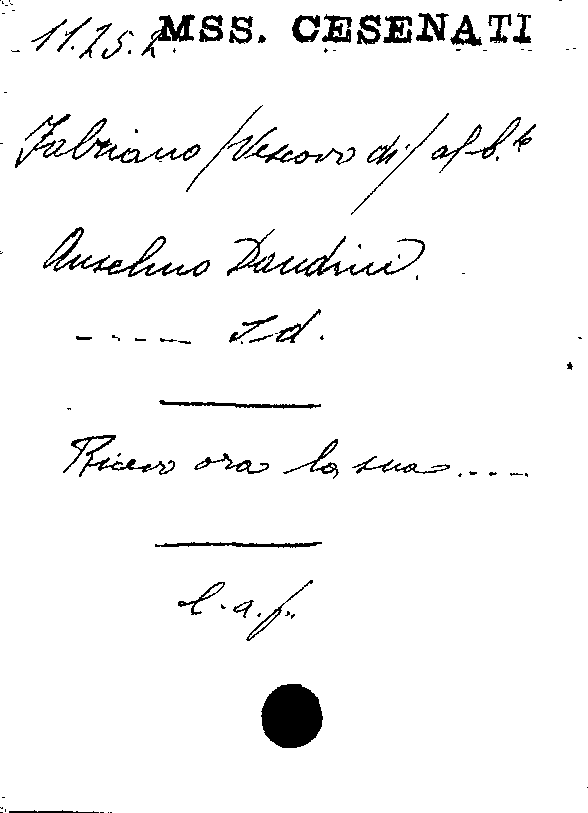 11.25.2. MSS. CESENATI
Fabriano /Vescovo di/ al b.te
Anselmo Dandini.
----- s.d.
Ricevo ora la sua ....
l.a.f.